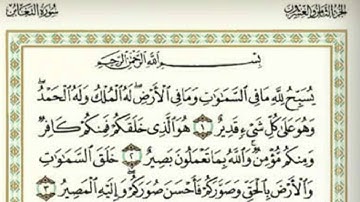 الجزء الثامن والعشرون سورة التغابن
بِسْمِ اللَّهِ الرَّحْمَٰنِ الرَّحِيمِ
يُسَبِّحُ لِلَّهِ مَا فِي السَّمَاوَاتِ وَمَا فِي الْأَرْضِ ۖ لَهُ الْمُلْكُ وَلَهُ الْحَمْدُ ۖ
وَهُوَ عَلَىٰ كُلِّ شَيْءٍ قَدِيرٌ ١ هُوَ الَّذِي خَلَقَكُمْ فَمِنكُمْ كَافِرٌ
وَمِنكُم مُّؤْمِنٌ ۚ وَاللَّهُ بِمَا تَعْمَلُونَ بَصِيرٌ ٢ خَلَقَ السَّمَاوَاتِ
وَالْأَرْضَ بِالْحَقِّ وَصَوَّرَكُمْ فَأَحْسَنَ صُوَرَكُمْ ۖ وَإِلَيْهِ الْمَصِيرُ ٣